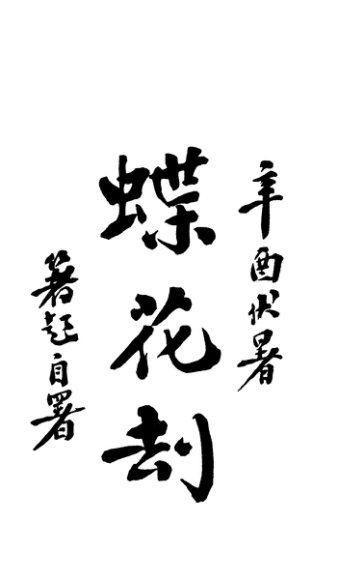 辛酉伏暑
蝶花刦
箸超自署